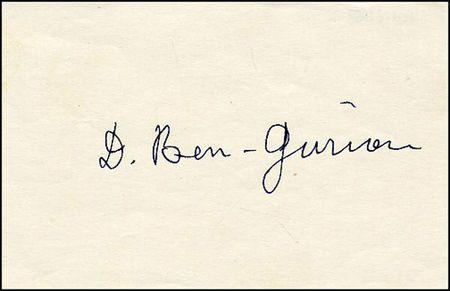 D. Ben-Gurion